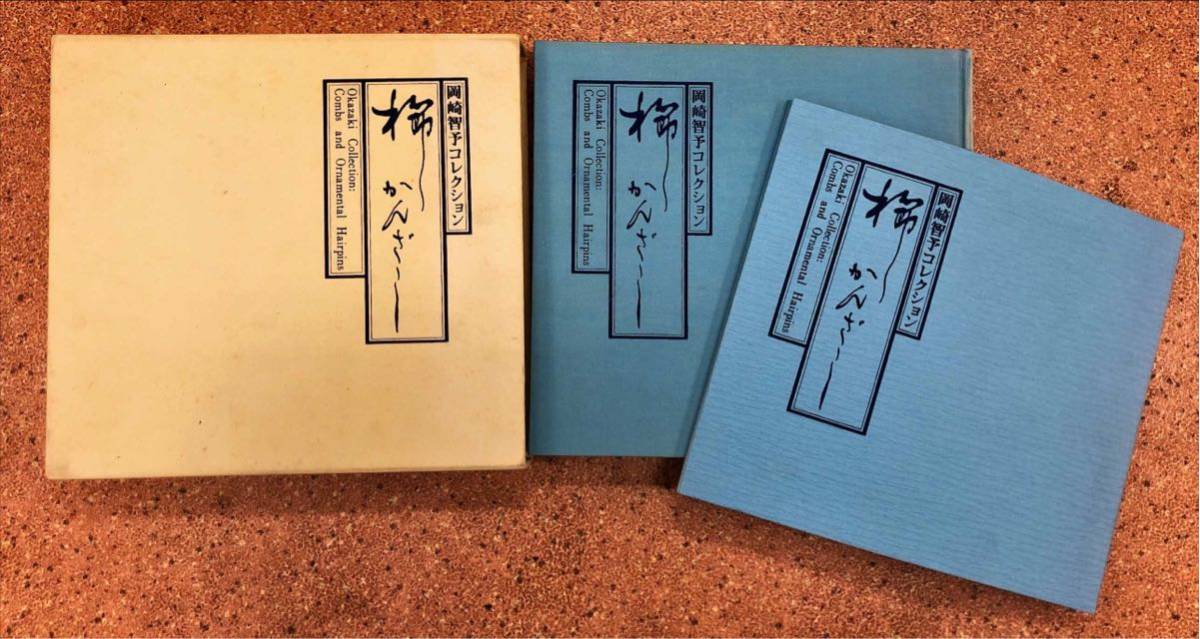 岡崎智予コレクション
櫛かんざし
Okazaki Collection:
Combs and Ornamental Hairpins
岡崎智予コレクション
櫛かんざし
Okazaki Collection:
Combs and Ornamental Hairpins
岡崎智予コレクション
櫛かんざし
Okazaki Collection:
Combs and Ornamental Hairpins